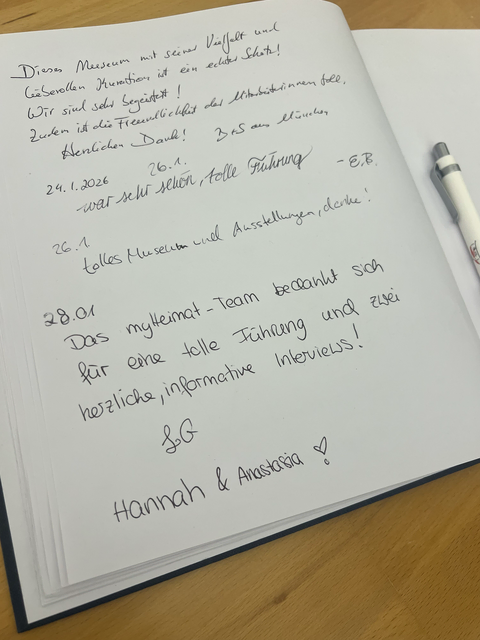 Dieses Museum mit seiner Vielfalt und
liebevollen Kuration ist ein echter Schatz!
Wir sind sehr begeistert!
Zudem ist die Freundlichkeit der Mitarbeiterinnen toll.
Herzlichen Dank! B+S aus München
24.1.2026 26.1.
war sehr schön, tolle Führung - E.B.
26.1
tolles Museum und Ausstellungen, danke!
28.01
Das myHeimat-Team bedankt sich
für eine tolle Führung und zwei
herzliche, informative Interviews!
LG
Hannah & Anastasia